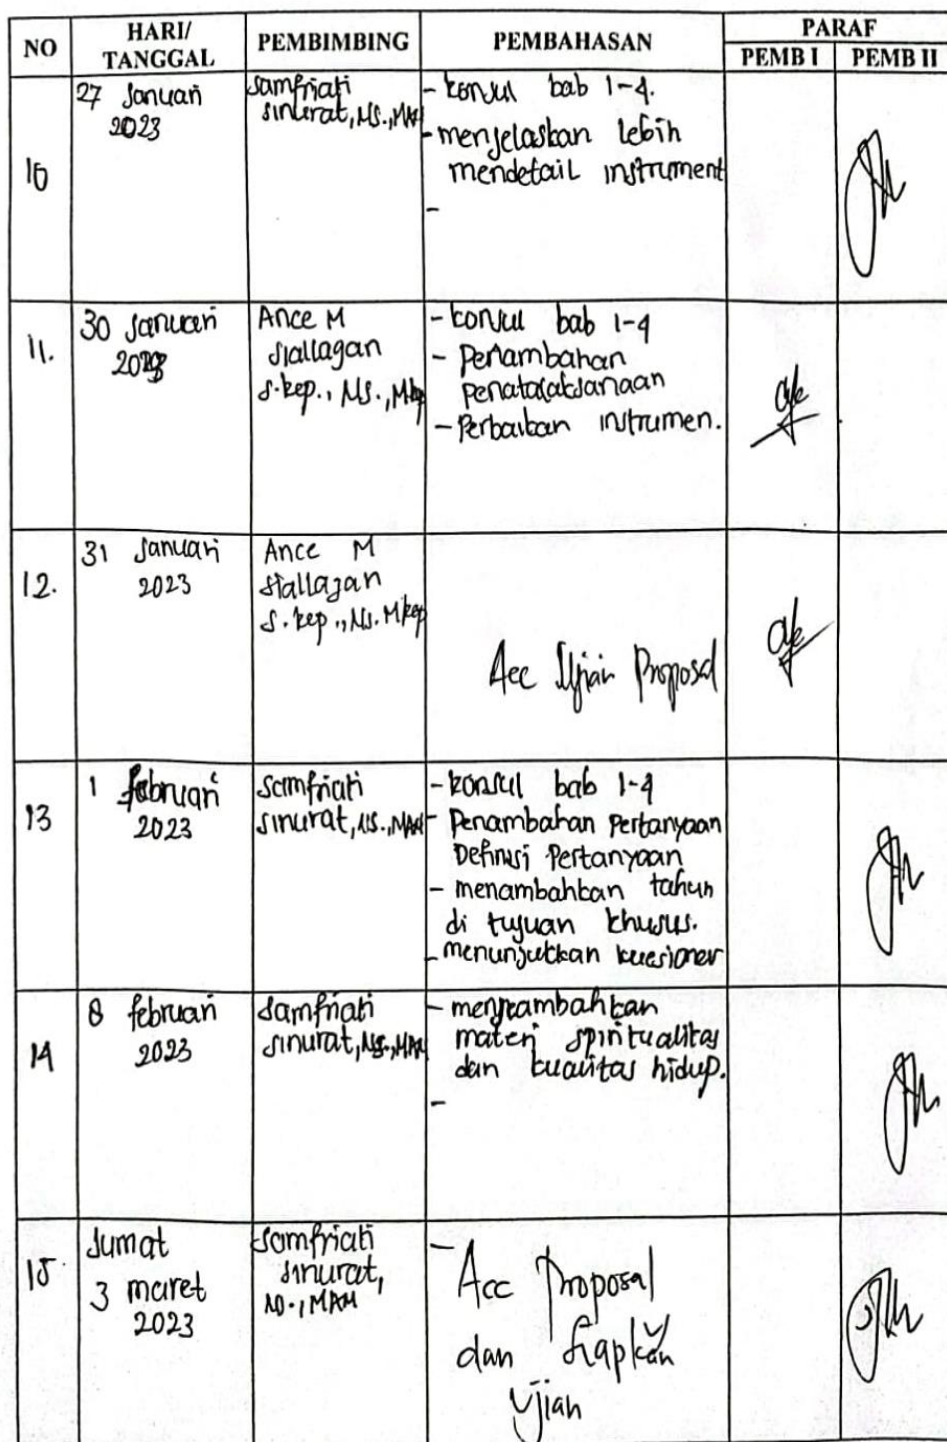 NO
HARI/
TANGGAL
PEMBIMBING
PEMBAHASAN
PARAF
PEMB I
PEMB II
10
27 Januari
2023
Samfriati
Sinurat, NS., MAN
- konsul bab 1-4.
- menjelaskan lebih
mendetail instrument
-
11.
30 Januari
2023
Ance M
Siallagan
S.kep., NS., Mkep
- konsul bab 1-4
- Penambahan
penatalaksanaan
- Perbaikan instrumen.
12.
31 Januari
2023
Ance M
Siallagan
S.kep., NS. Mkep
Acc Ujian Proposal
13
1 februari
2023
Samfriati
Sinurat, NS., MAN
- konsul bab 1-4
- Penambahan Pertanyaan
Definisi Pertanyaan
- menambahkan tahun
di tujuan khusus.
- menunjukkan kuesioner
14
8 februari
2023
Samfriati
Sinurat, NS., MAN
- menambahkan
materi spiritualitas
dan kualitas hidup.
-
15
Jumat
3 maret
2023
Samfriati
Sinurat,
NS., MAN
-
Acc Proposal
dan siapkan
ujian